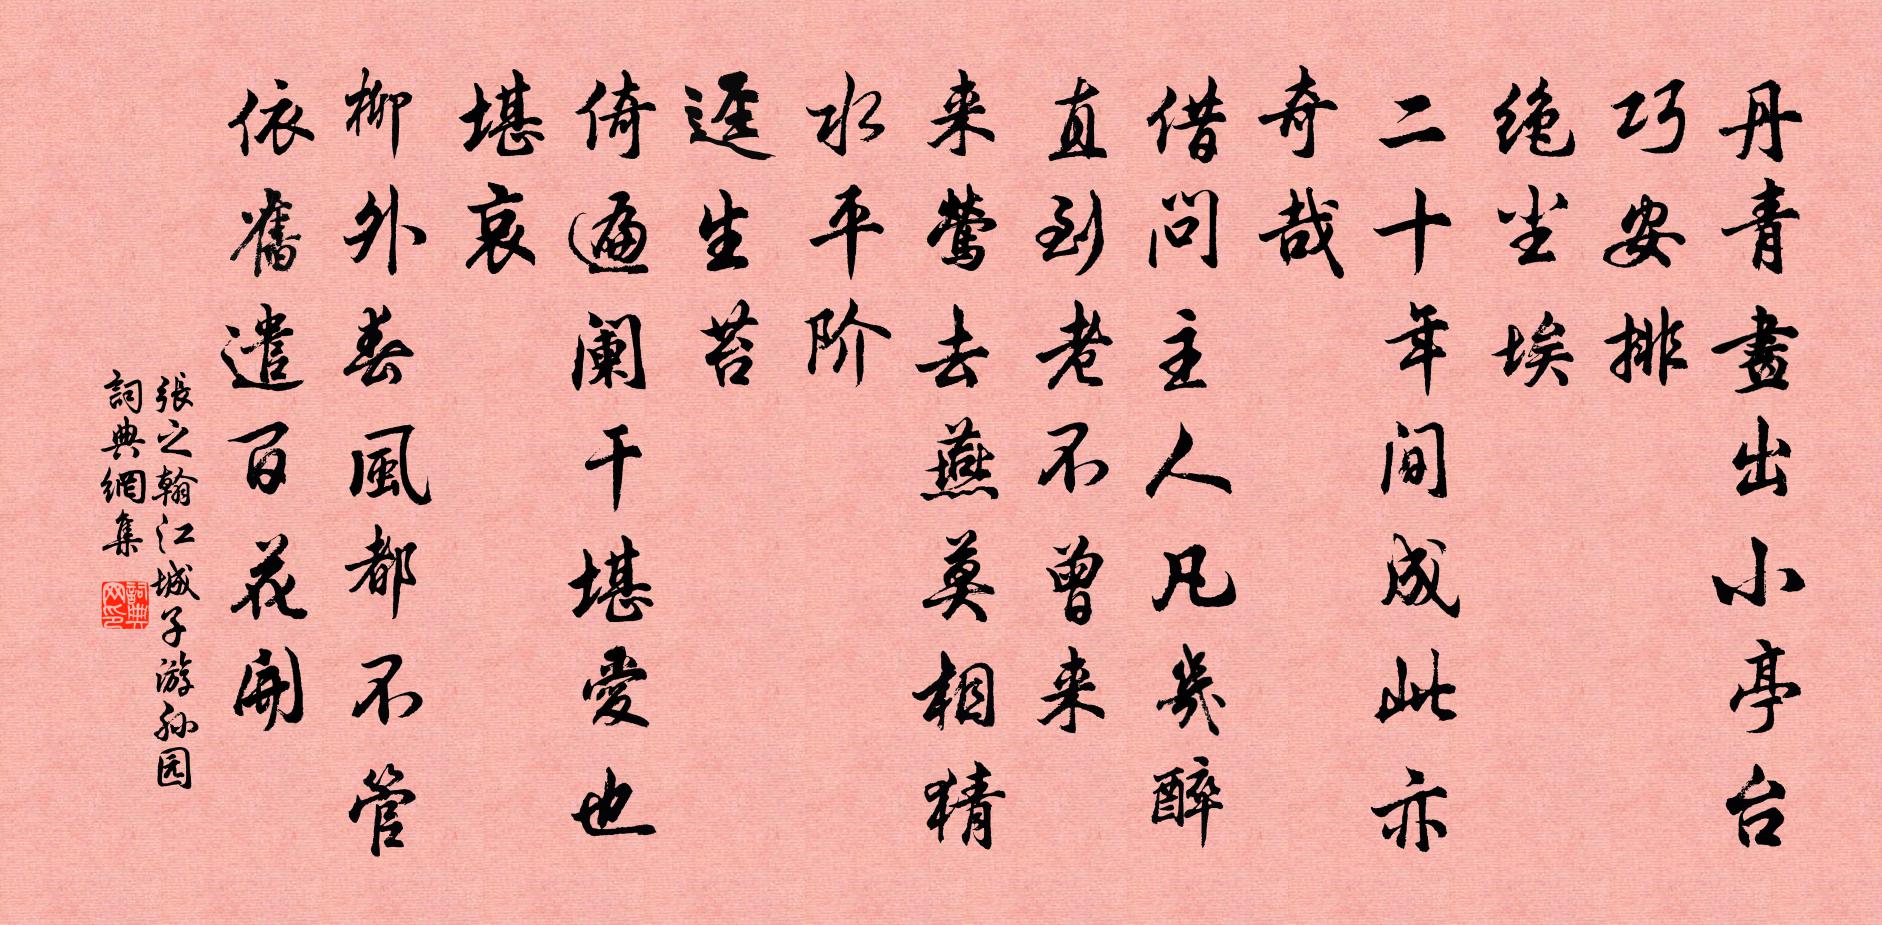 丹青畫出小亭台
巧安排
绝尘埃
二十年间成此亦
奇哉
借问主人凡幾醉
直到老不曾来
来鶯去燕莫相猜
水平阶
逕生苔
倚遍阑干堪愛也
堪哀
柳外春風都不管
依舊遣百花開
張之翰江城子游孙园
詞典網集
詞典网印